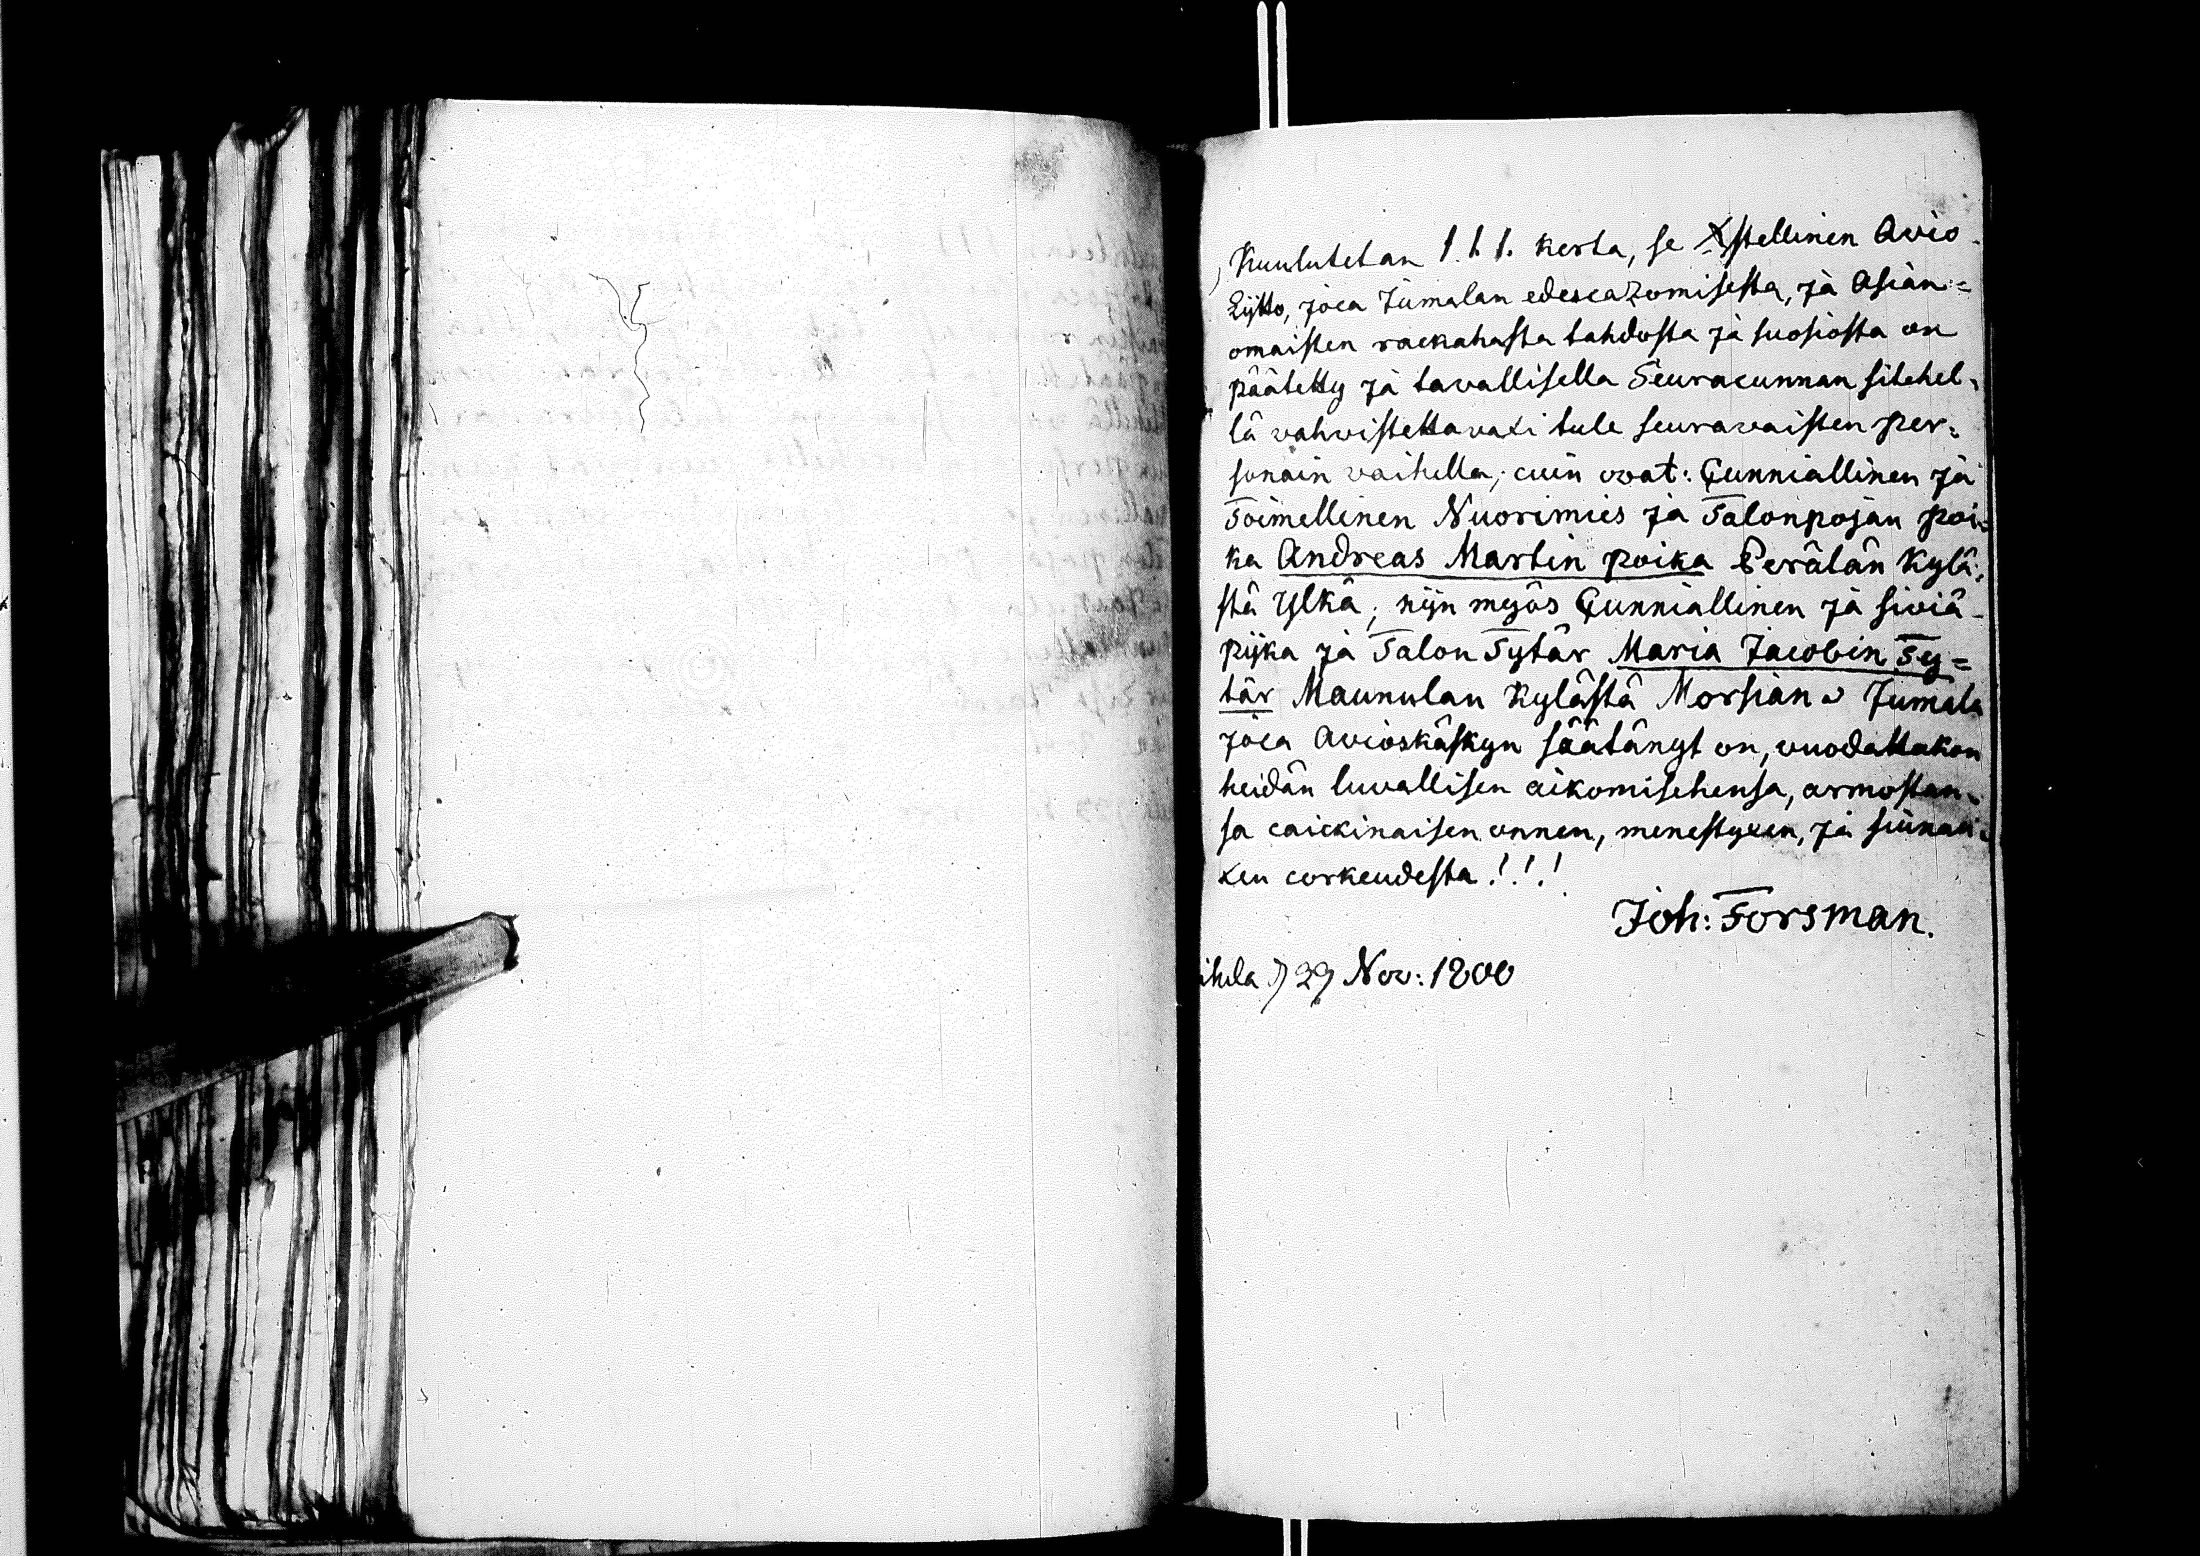 Kuulutetan 1. 1. 1. kerta, se Xstellinen Avio-
Lijtto, joca Jumalan edescazomisesta, ja Asian=
omaisten rackahasta tahdosta ja suosiosta on
päätetty ja tavallisella Seuracunnan sitehel-
lä vahvistettavaxi tule seuravaisten per=
sonain vaihella; cuin ovat: Cunniallinen ja
Toimellinen Nuorimies ja Talonpojan poi=
ka Andreas Martin poika Perälän Kylä=
stä Ylkä; nijn myös Cunniallinen ja siviä
pijka ja Talon Tytär Maria Jacobin Ty=
tär Maunulan Kylästä Morsian Jumala
joca Avioskäskyn säätänyt on, vuodattakon
heidän luvallisen aikomisehensa, armostan-
sa caickinaisen onnen, menestyxen, ja siunau-
xen corkeudesta!!!
Joh: Forsman.
29 Nov: 1800